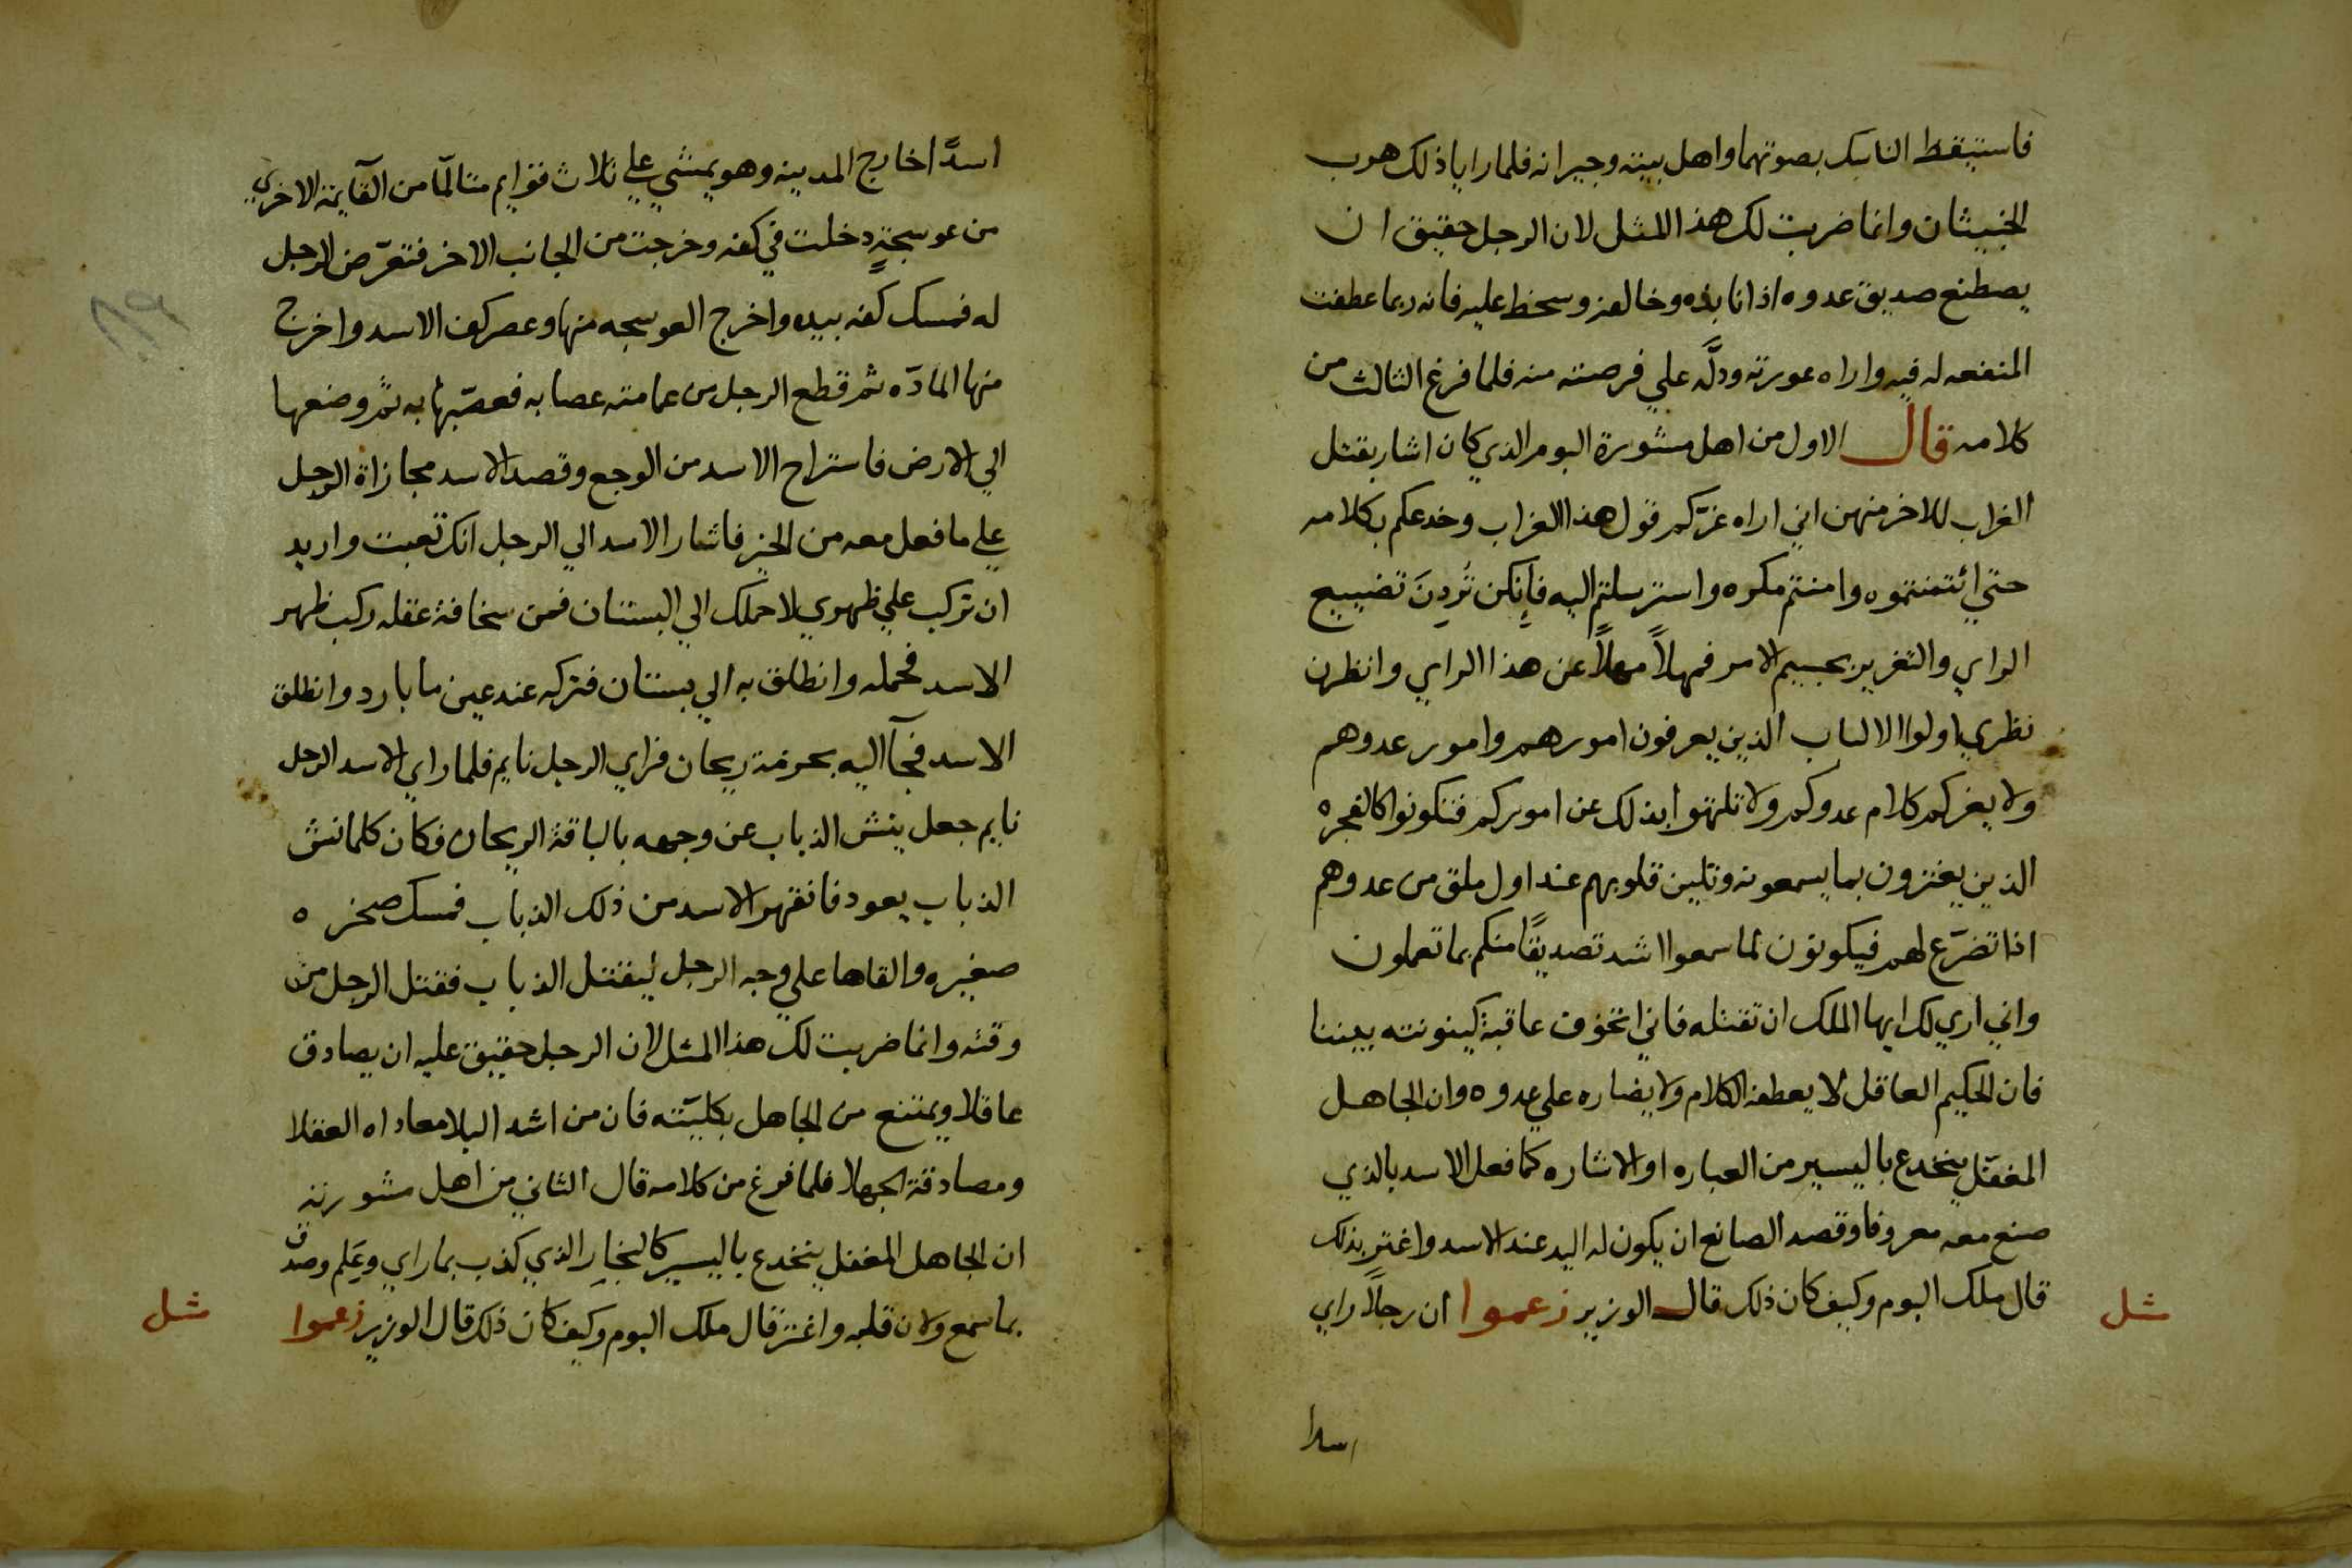 فاستيقط الناسك بصوتهما واهل بيته وجيرانه فلما رايا ذلك هرب
الخبيثان وانما ضربت لك هذا اللمثل لان الرجل حقيق ان
يصطنع صديق عدوه اذا نابذه وخالفه وسخط عليه فانه ربما عطفت
المنفعه له فيه واراه عورته ودلَّه علي فرصته منه فلما فرغ الثالث من
كلامه قال الاول من اهل مشورة البوم الذي كان اشار بقتل
الغراب للاخر منهن اني اراه غرّكم قول هذا الغراب وخدعكم بكلامه
حتي ائتمنتموه وامنتم مكره واسترسلتم اليه فاِنكن تُردِنَ تضييع
الراي والتغرير بجسيم الامر فمهلاً مهلاً عن هذا الراي وانظرن
نظر ي اولوا الالباب الذين يعرفون امورهم وامور عدوهم
ولا يغركم كلام عدوكم ولا تلتهوا بذلك عن اموركم فتكونوا كالفجره
الذين يغترون بما يسمعونه وتلين قلوبهم عند اول ملق من عدوهم
اذا تضرّع لهم فيكونون لما سمعوا اشد تصديقًا منكم بما تعملون
واني اري لك ايها الملك ان تقتله فاني اتخوف عاقبة كينونته بيننا
فان الحكيم العاقل لا يعطفه الكلام ولا يضاره علي عدوه وان الجاهل
المغفّل ينخدع باليسير من العباره او الاشاره كما فعل الاسد بالذي
صنع معه معروفا وقصد الصانع ان يكون له اليد عند الاسد واغتر بذلك
قال ملك البوم وكيف كان ذلك قال الوزير زعموا ان رجلاً راي
مثل
اسدا
اسدًا خارج المدينه وهو يمشي علي ثلاث قوايم متالمًا من القايمة الاخري
من عوسجةٍ دخلت في كفه وخرجت من الجانب الاخر فتعرّض الرجل
له فمسك كفه بيده واخرج العوسجه منها وعصر كف الاسد واخرج
منها المادّه ثم قطع الرجل من عمامته عصابه فعصّبها به ثم وضعها
الي الارض فاستراح الاسد من الوجع وقصد الاسد مجازاة الرجل
علي ما فعل معه من الخير فاشار الاسد الي الرجل انك تعبت واريد
ان تركب علي ظهري لاحملك الي البستان فمن سخافة عقله ركب ظهر
الاسد فحمله وانطلق به الي بستان فتركه عند عين ما بارد وانطلق
الاسد فجآ اليه بحزمة ريحان فراي الرجل نايم فلما راي الاسد الرجل
نايم جعل ينش الذباب عن وجهه بالباقة الريحان فكان كلما نش
الذباب يعود فانقهر الاسد من ذلك الذباب فمسك صخره
صغيره والقاها علي وجه الرجل ليقتل الذباب فقتل الرجل من
وقته وانما ضربت لك هذا المثل لان الرجل حقيق عليه ان يصادق
عاقلا ويمتنع من الجاهل بكليّته فان من اشد البلا معاداه العقلا
ومصادقة الجهلا فلما فرغ من كلامه قال الثاني من اهل مشورته
ان الجاهل المغفل ينخدع باليسير كالنجار الذي كذب بما راي وعَلم وصدق
بما سمع ولان قلبه واغتر قال ملك البوم وكيف كان ذلك قال الوزير زعموا
مثل